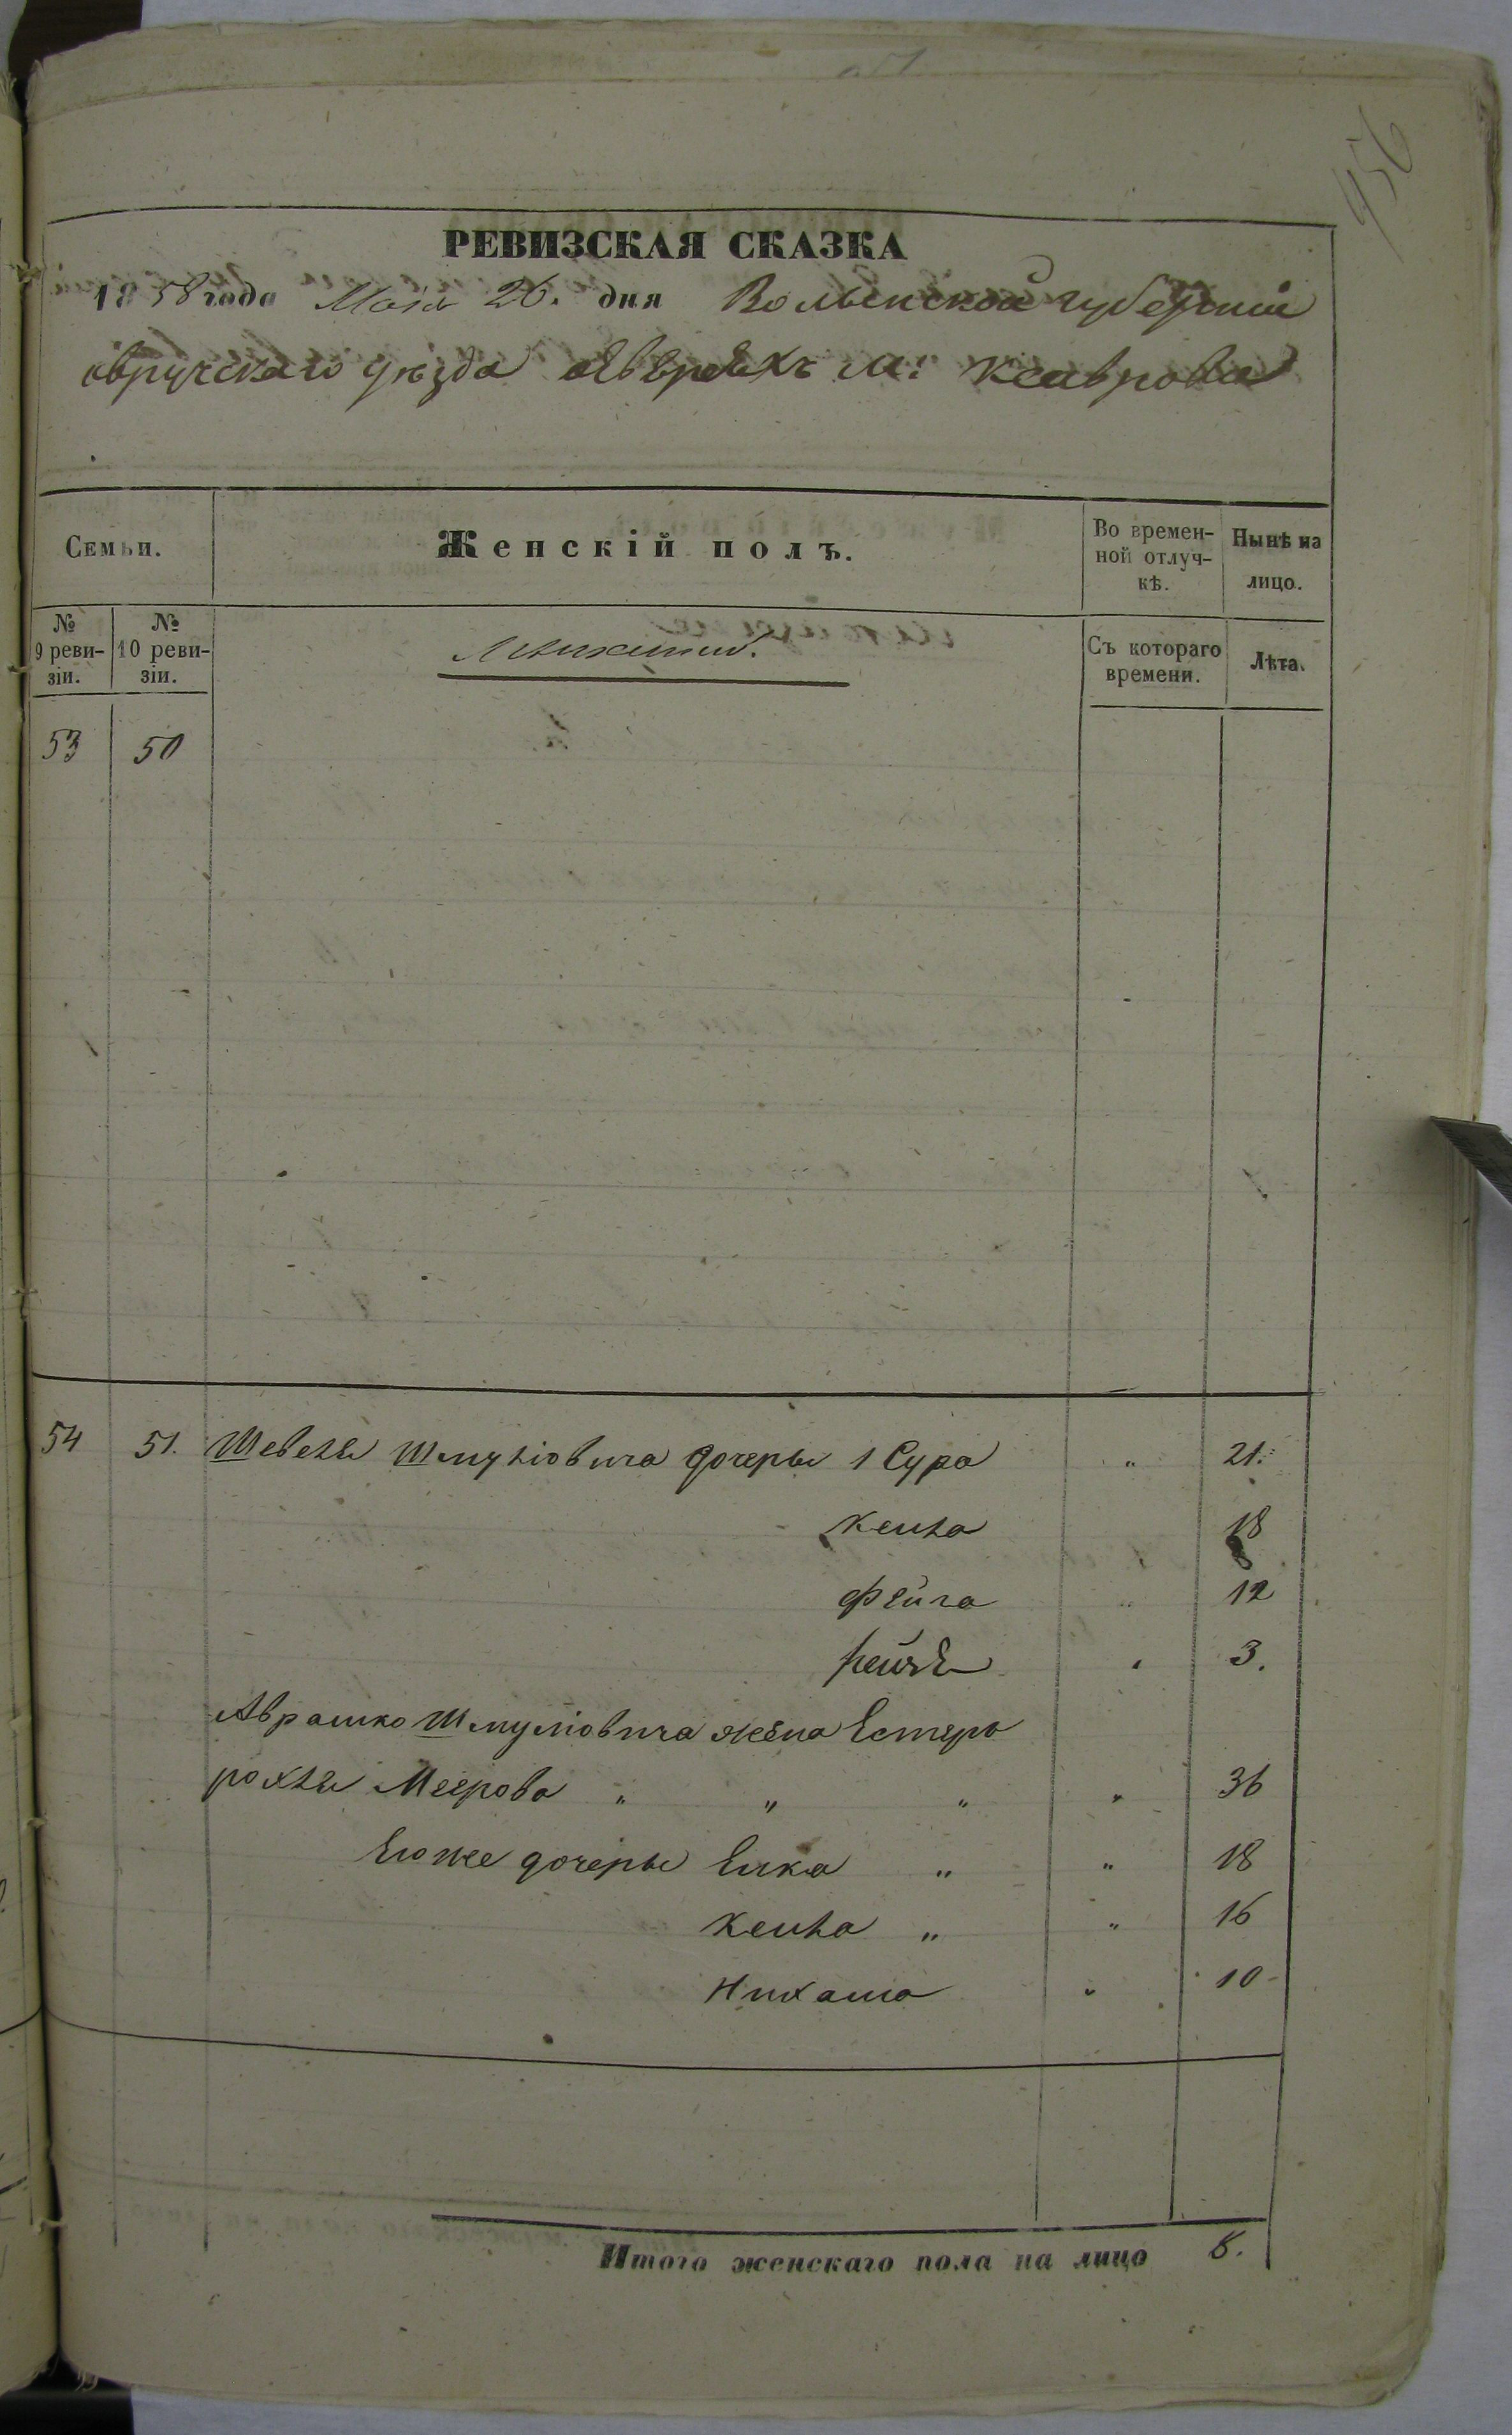 456
РЕВИЗСКАЯ СКАЗКА
1858 года Мая 26. дня Волынской губерніи
овручскаго уѣзда о Евреяхъ м: Ксаврова
Семьи.
Женскій полъ.
Во времен-
ной отлуч-
кѣ.
Нынѣ на
лицо.
№
9 реви-
зіи.
№
10 реви-
зіи.
Съ котораго
времени.
Лѣта.
53 50
54 51. Шевеля Шмуліовича дочеры 1 Сура " 21.
Кейла 18
Фейга " 12
3.
Аврашко Шмуліовича жена Естеръ
рохля Меерова " " " " 36
Егоже дочеры Елка " " 18
Кейла " " 16
Нихама " 10
Итого женскаго пола на лицо 8.